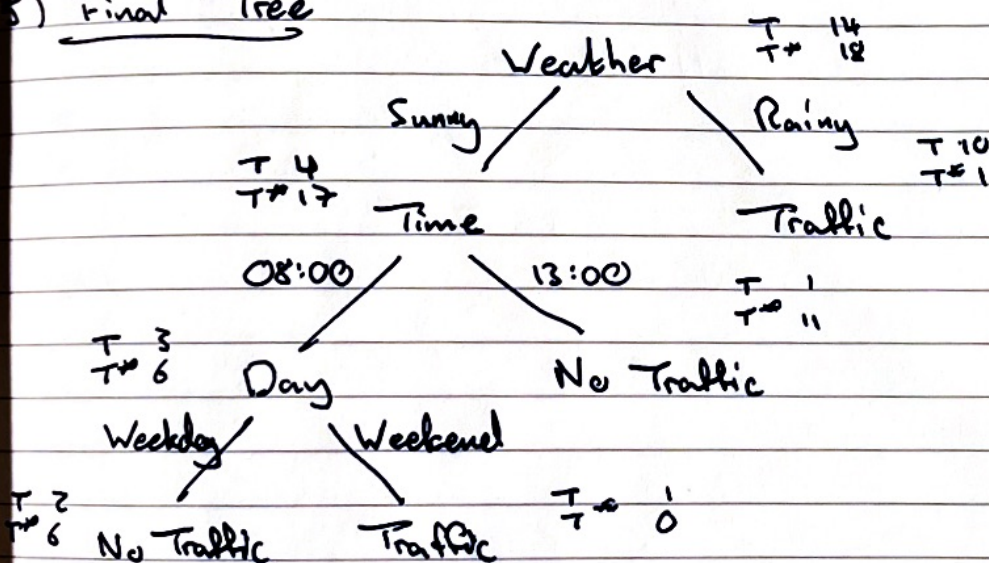 5) Final Tree
T 14
Weather T* 18
Sunny Rainy
T 4 T 10
T* 17 T* 1
Time Traffic
08:00 13:00 T 1
T* 11
T 3
T* 6 Day No Traffic
Weekday Weekend
T 2 T 1
T* 6 T* 0
No Traffic Traffic